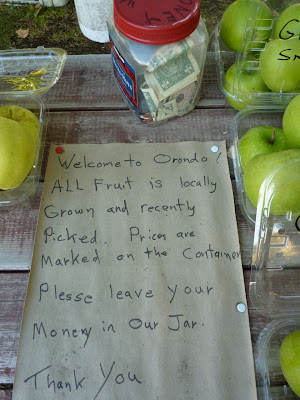 MONEY
G
Sm
Welcome to Orondo!
ALL Fruit is locally
Grown and recently
Picked. Prices are
Marked on the Container
Plesse leave your
Monery in Our Jar.
Thank You